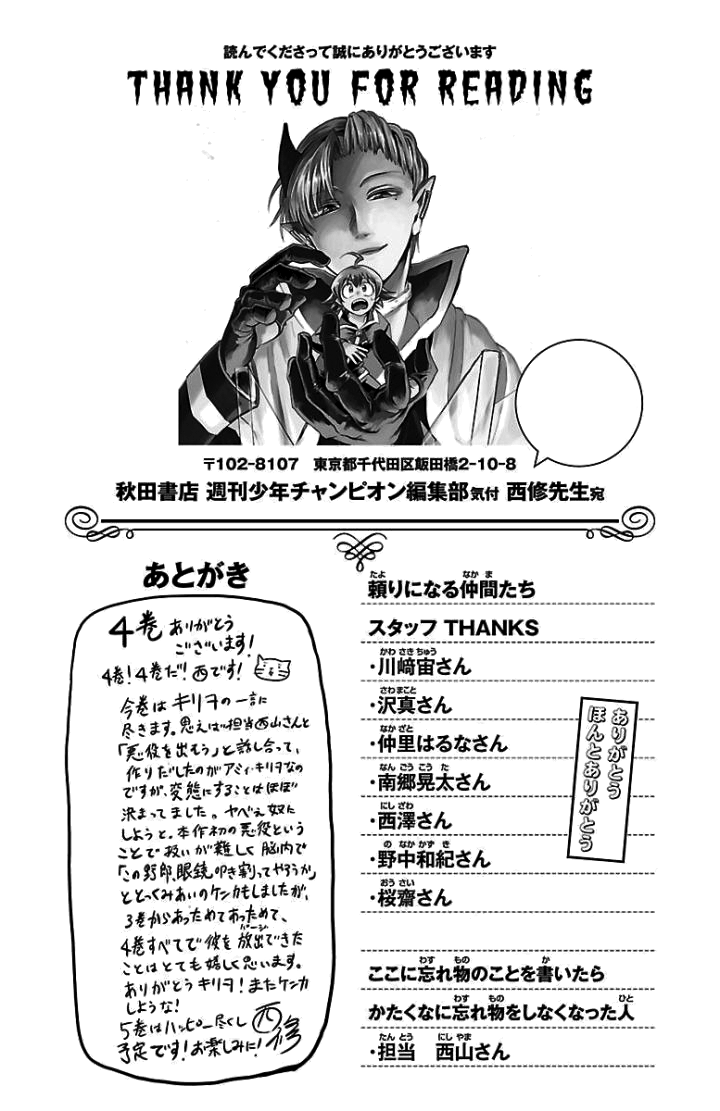 読んでくださって誠にありがとうございます
THANK YOU FOR READING
〒102-8107 東京都千代田区飯田橋2-10-8
秋田書店 週刊少年チャンピオン編集部気付 西修先生宛
あとがき
4巻ありがとう
ございます!
4巻!4巻だ!西です!
今巻はキリヲの一言に
尽きます。思えば担当西山さんと
「悪役を出もう」と話し合って、
作りだしたのがアミィ・キリヲなの
ですが、変態にすることはほぼ
決まってました。ヤベぇ奴に
しようと。本作初の悪役という
ことで扱いが難しく脳内で
「この野郎、眼鏡叩き割ってやろうか」
ととっくみあいのケンカもしましたが、
3巻からあっためてあっためて、
4巻すべてで彼を放出できた
パージ
ことはとても嬉しく思います。
ありがとうキリヲ!またケンカ
しような!
5巻はハッピー尽くし
予定です!お楽しみに!
西修
たよ なかま
頼りになる仲間たち
スタッフ THANKS
かわさきちゅう
・川﨑宙さん
さわまこと
・沢真さん
なかざと
・仲里はるなさん
なんごうこうた
・南郷晃太さん
にしざわ
・西澤さん
のなかかずき
・野中和紀さん
おうさい
・桜齋さん
ありがとう
ほんとありがとう
わす もの か
ここに忘れ物のことを書いたら
わす もの ひと
かたくなに忘れ物をしなくなった人
たんとう にしやま
・担当 西山さん